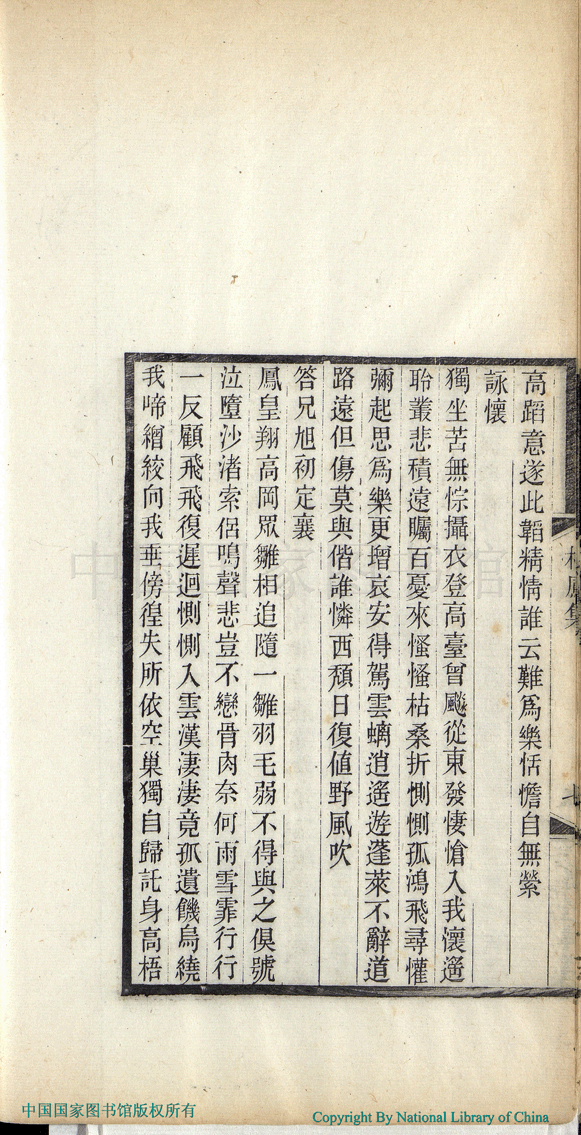 高蹈意遂此韜精情誰云難爲樂恬憺自無縈
詠懷
獨坐苦無悰攝衣登高臺曾飈從東發悽愴入我懷遙
聆叢悲積遠矚百憂來慅慅枯桑折惻惻孤鴻飛尋懽
彌起思爲樂更增哀安得駕雲螭逍遙遊蓬萊不辭道
路遠但傷莫與偕誰憐西頹日復値野風吹
答兄旭初定襄
鳳皇翔高岡眾雛相追隨一雛羽毛弱不得與之俱號
泣墮沙渚索侶鳴聲悲豈不戀骨肉奈何雨雪霏行行
一反顧飛飛復遲迴惻惻入雲漢淒淒竟孤遺饑烏繞
我啼繒絞向我垂傍徨失所依空巢獨自歸託身高梧
七
中国国家图书馆
中国国家图书馆版权所有
Copyright By National Library of China